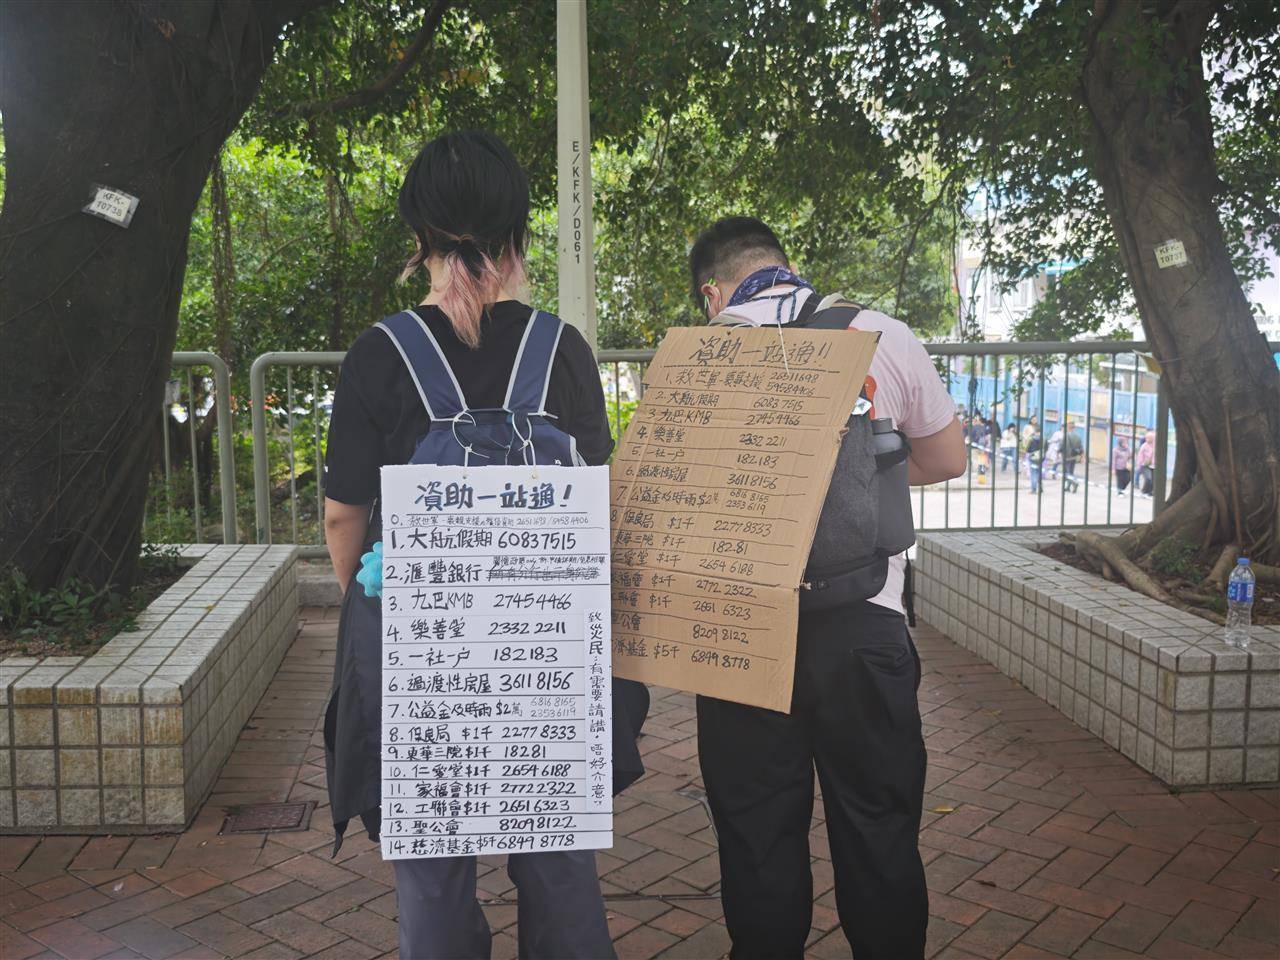 KFK-
T0738
E/KFK/D061
KFK-
T0737
資助一站通!
0. 救世軍
26511698/59584406
1. 大航假期 60837515
2. 滙豐銀行
3. 九巴KMB 27454466
4. 樂善堂 2332 2211
5. 一社一户 182183
6. 過渡性房屋 3611 8156
7. 公益金及時雨 $2萬 6816 8165
2353 6119
8. 保良局 $1千 2277 8333
9. 東華三院 $1千 18281
10. 仁愛堂 $1千 2654 6188
11. 家福會 $1千 2772 2322
12. 工聯會 $1千 2651 6323
13. 聖公會 8209 8122
14. 慈濟基金 $5千 6849 8778
致災民:有需要請講,唔好介意!
資助一站通!!
1. 救世軍 26511698
59584406
2. 大航假期 60837515
3. 九巴KMB 27454466
4. 樂善堂 2332 2211
5. 一社一户 182183
6. 過渡性房屋 36118156
7 公益金及時雨 $2萬 6816 8165
2353 6119
8 保良局 $1千 2277 8333
東華三院 $1千 182.81
仁愛堂 $1千 2654 6188
家福會 $1千 2772 2322
工聯會 $1千 2651 6323
聖公會 8209 8122
濟基金 $5千 6849 8778